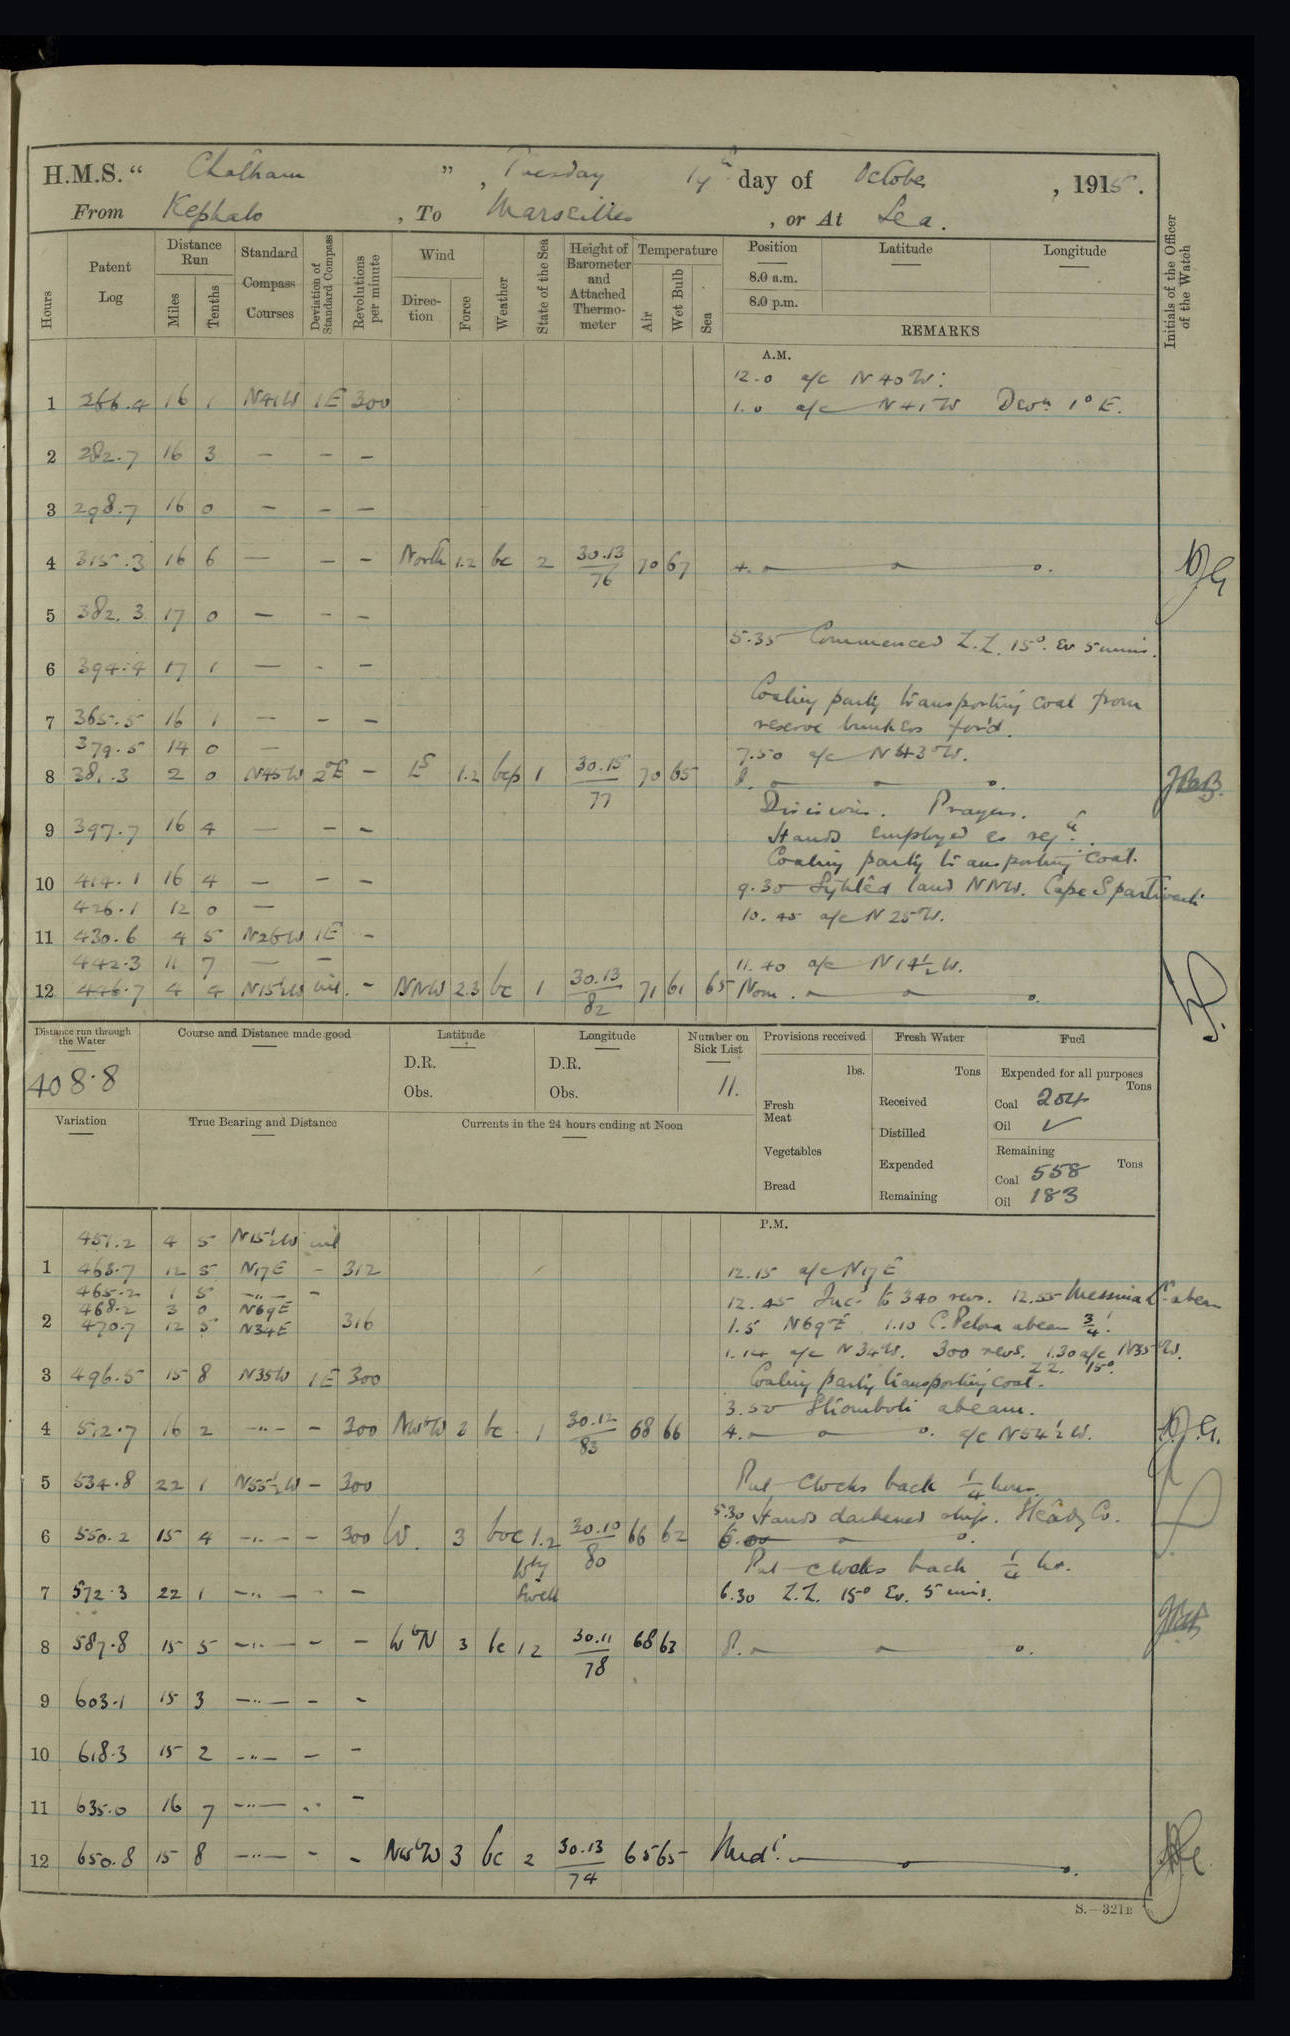 H.M.S. “ Chatham ”, Tuesday 19th day of October, 1915.
From Kephalo, To Marseilles, or At Sea.
Hours
Patent Log
Distance Run
Miles
Tenths
Standard Compass Courses
Deviation of Standard Compass
Revolutions per minute
Wind
Direction
Force
Weather
State of the Sea
Height of Barometer and Attached Thermometer
Temperature
Air
Wet Bulb
Sea
Position
Latitude
Longitude
8.0 a.m.
8.0 p.m.
REMARKS
Initials of the Officer of the Watch
A.M.
12.0 a/c N 40 W.
1 266.4 16 1 N41W 1E 300 1.0 a/c N 41 W Devn 1° E.
2 282.7 16 3 – – –
3 298.7 16 0 – – –
4 315.3 16 6 – – – North 1.2 bc 2 30.13 76 70 67 4.
5 382.3 17 0 – – –
5.35 Commenced Z.Z. 15°. Ev 5 mins.
6 394.4 17 1 – - –
Coaling party transporting coal from
7 365.5 16 1 – – – reserve bunkers for'd.
379.5 14 0 – 7.50 a/c N 43 W.
8 381.3 2 0 N45W 2E – 1.2 bcp 1 30.15 77 70 65 8.
Divisions. Prayers.
9 397.7 16 4 – – – Hands employed as reqd.
Coaling party transporting coal.
10 414.1 16 4 – – – 9.30 Sighted land NNW. Cape Spartivento
426.1 12 0 – 10.45 a/c N 25 W.
11 430.6 4 5 N26W 1E –
442.3 11 7 – – 11.40 a/c N 14½ W.
12 446.7 4 4 N15½W nil. – NNW 2.3 bc 1 30.13 82 71 61 65 Noon.
Distance run through the Water
408.8
Course and Distance made good
Latitude
D.R.
Obs.
Longitude
D.R.
Obs.
Number on Sick List
11.
Provisions received
lbs.
Fresh Meat
Vegetables
Bread
Fresh Water
Tons
Received
Distilled
Expended
Remaining
Fuel
Expended for all purposes
Tons
Coal 204
Oil ✓
Remaining
Tons
Coal 558
Oil 183
Variation
True Bearing and Distance
Currents in the 24 hours ending at Noon
P.M.
451.2 4 5 N15½W nil
1 463.7 12 5 N17E – 312 12.15 a/c N17E
465.2 1 5 –"– – 12.45 Incd to 340 revs. 12.55 Messina Lt abeam
468.2 3 0 N69E
2 470.7 12 5 N34E 316 1.5 N69E 1.10 C. Pelora abeam ¾'.
1.14 a/c N 34 W. 300 revs. 1.30 a/c N35 W.
ZZ. 15°.
3 496.5 15 8 N35W 1E 300 Coaling party transporting coal.
3.50 Stromboli abeam.
4 512.7 16 2 –"– – 300 NWbW 2 bc 1 30.12 83 68 66 4. a/c N54½ W.
5 534.8 22 1 N55½W – 300 Put clocks back ¼ hour.
5.30 Hands darkened ship. Steady Co.
6 550.2 15 4 –"– – 300 W. 3 boc 1.2 30.10 80 66 62 6.00
Wly Swell
Put clocks back ¼ hr.
7 572.3 22 1 –"– - – 6.30 Z.Z. 15° Ev. 5 mins.
8 587.8 15 5 –"– – – WbN 3 bc 12 30.11 78 68 63 8.
9 603.1 15 3 –"– – –
10 618.3 15 2 –"– – –
11 635.0 16 7 –"– –
12 650.8 15 8 –"– – – NWbW 3 bc 2 30.13 74 65 65 Midt.
S.—321B